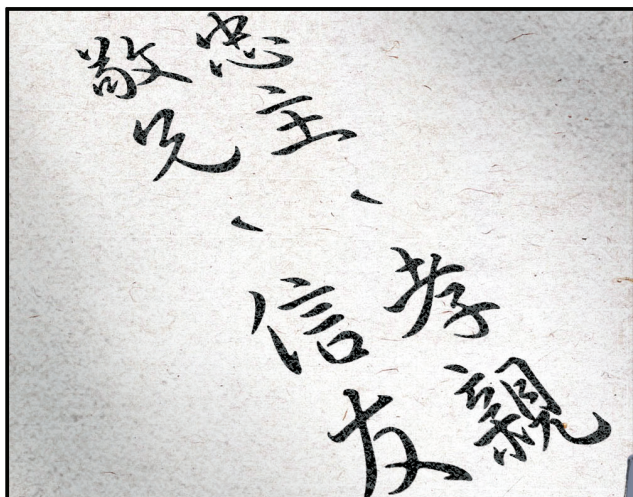 忠主、孝親
敬兄、信友